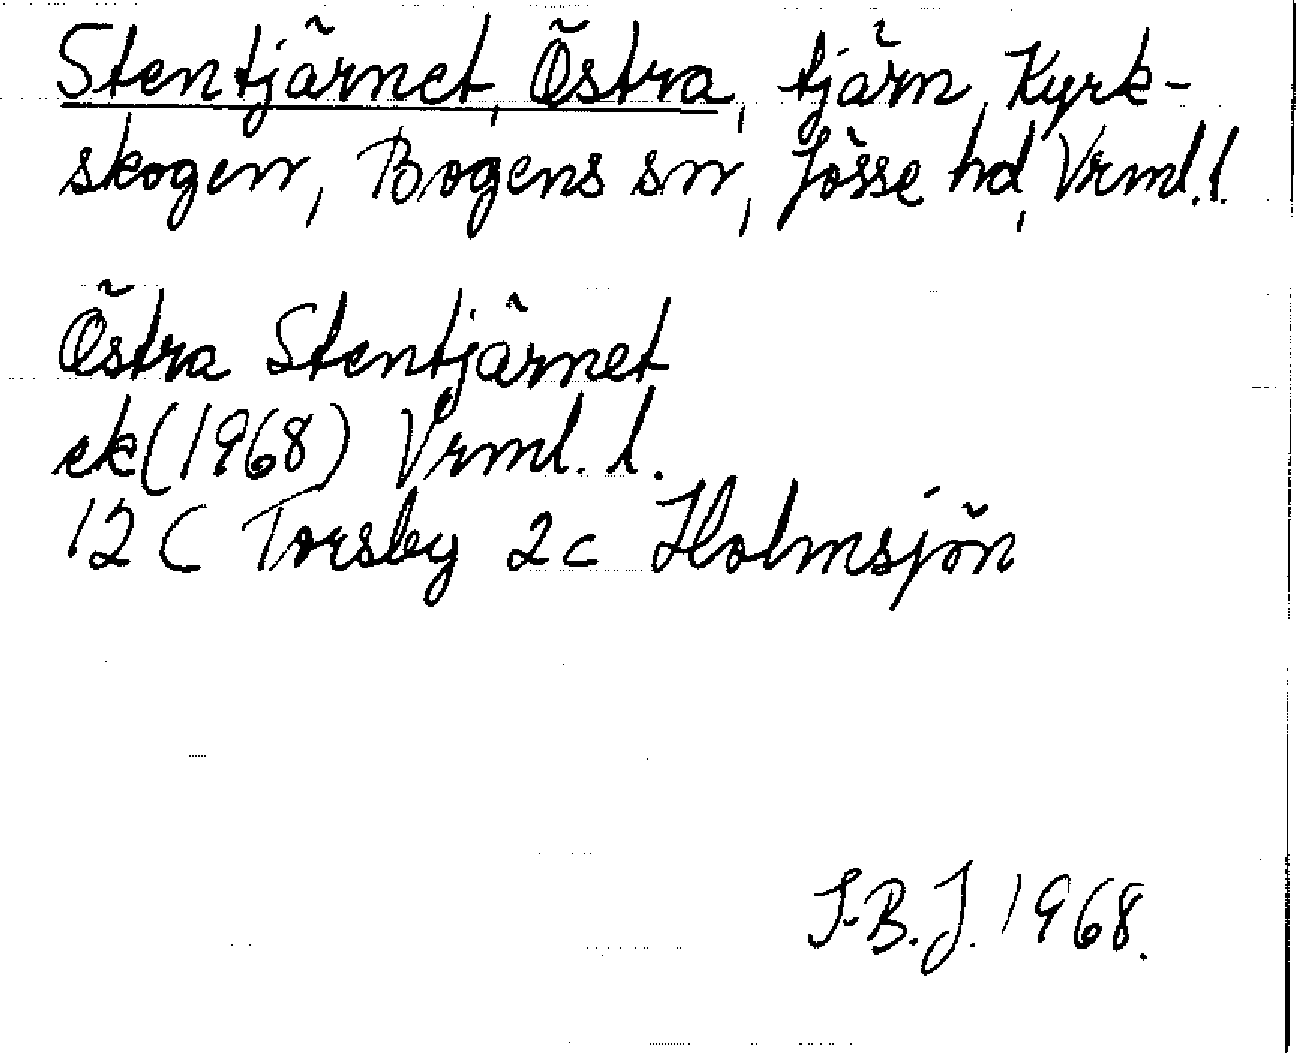 Stentjärnet, Östra, tjärn, Kyrk-
skogen, Bogens sn, Jösse hd, Vrml. l.
Östra Stentjärnet
ek (1968) Vrml. l.
12 C Torsby 2c Holmsjön
I-B. J. 1968.